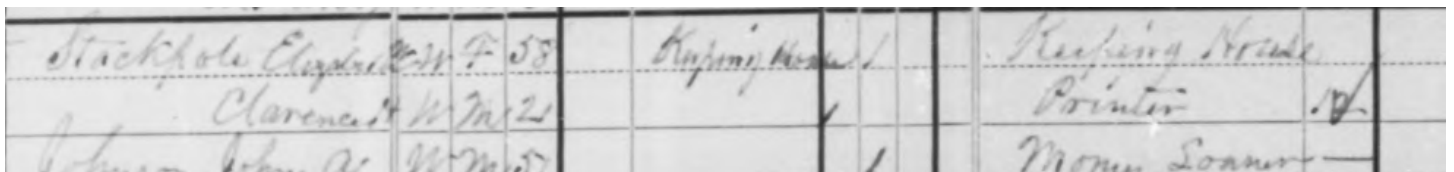 Stackpole Elizabeth W F 58 Keeping House / Keeping House
Clarence H W M 21 Printer
Johnson John A W M 5 Money Loaner —